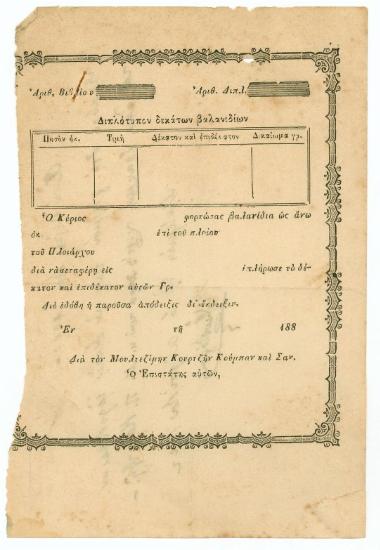 Ἀριθ. Βιβλίου Ἀριθ. Διπλ.
Διπλότυπον δεκάτων βαλανιδίων
Ποσὸν ὀκ. Τιμὴ Δέκατον καὶ ἐπιδέκατον Δικαίωμα γρ.
Ὁ Κύριος φορτώσας βαλανίδια ὡς ἄνω
ὀκ ἐπὶ τοῦ πλοίου
τοῦ Πλοιάρχου
διὰ νὰ μεταφέρῃ εἰς ἐπλήρωσε τὸ δέ-
κατον καὶ ἐπιδέκατον αὐτῶν Γρ.
Διὸ ἐδόθη ἡ παροῦσα ἀπόδειξις δι' ἔνδειξιν.
Ἐν τῇ 188
Διὰ τὸν Μουλτεζίμην Κουρτζῆν Κούμπαν καὶ Σαν.
Ὁ Ἐπιστάτης αὐτῶν,